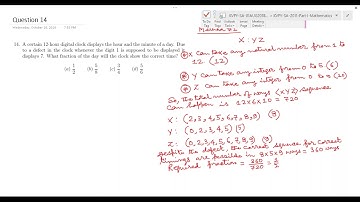 Question 14
Wednesday, October
14. A certain 12 hour digital clock displays the hour and the minute of a day. Due
to a defect in the clock whenever the digit 1 is supposed to be displayed it
displays 7. What fraction of the day will the clock show the correct time?
(a) 1/2 (b) 5/8 (c) 3/4 (d) 5/6
X : YZ
X can take any natural number from 1 to
12. (12)
Y can take any integer from 0 to 5 (6)
Z can take any integer from 0 to 9 (10)
So, the total number of ways <XYZ> sequence
can happen is 12×6×10 = 720
X: (2,3,4,5,6,7,8,9) (8)
Y: (0,2,3,4,5) (5)
Z: (0,2,3,4,5,6,7,8,9) (9)
Despite the defect, the correct sequence for correct
timings are possible in 8×5×9 ways = 360 ways
Required fraction = 360/720 = 1/2